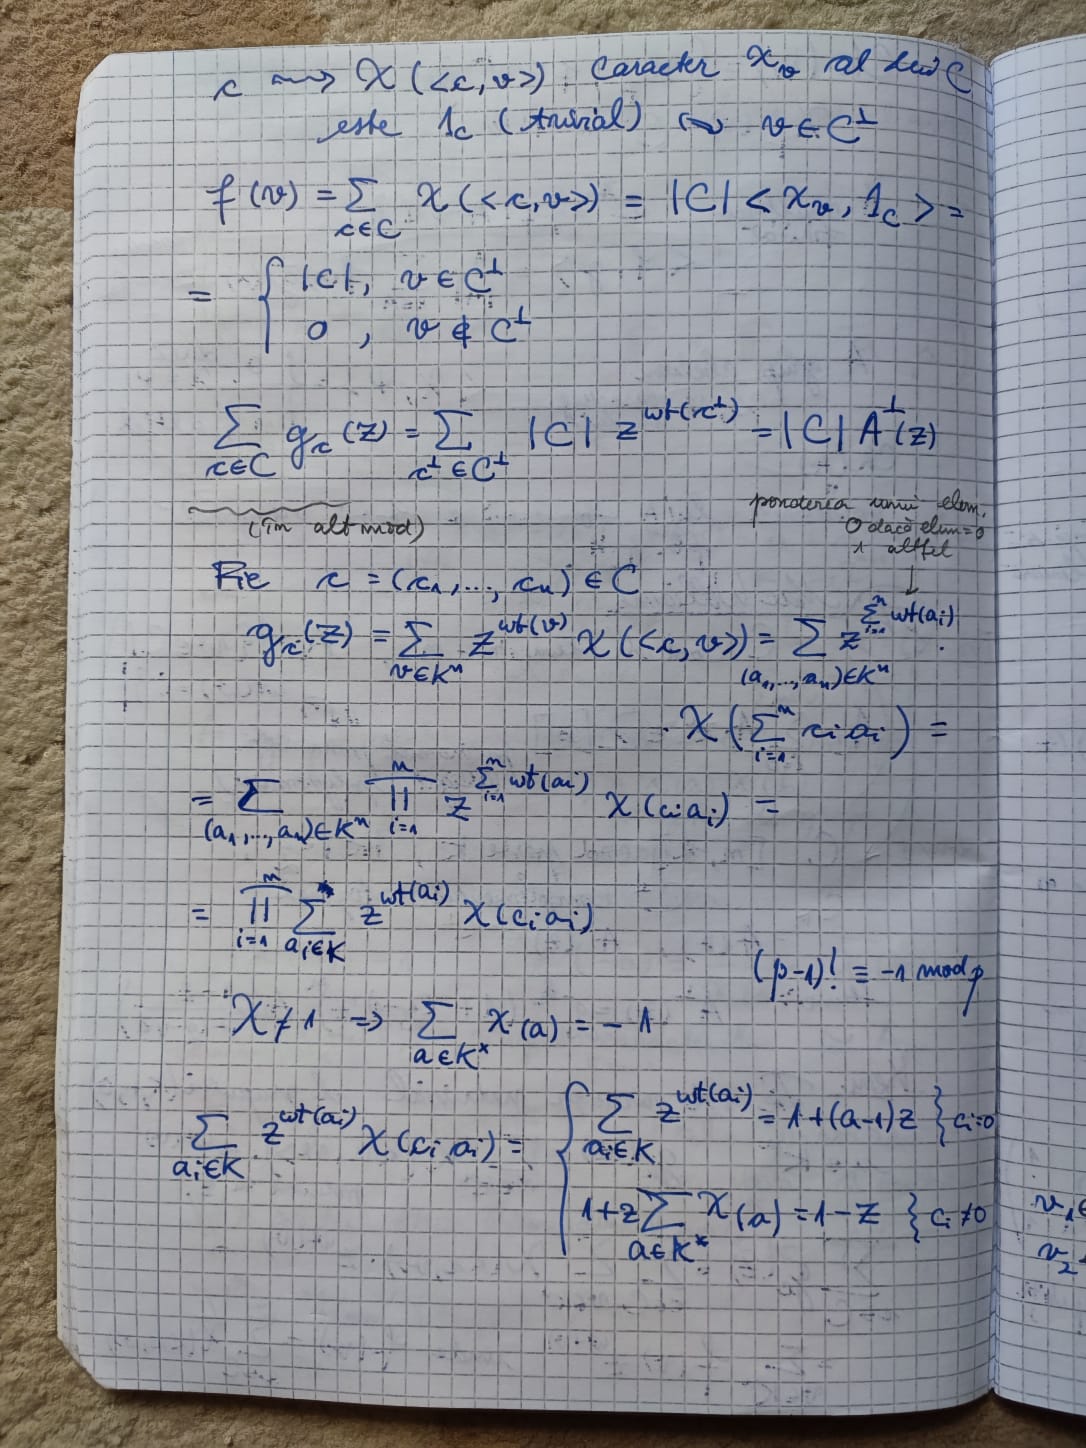 c ⟿ χ(<c,v>). Caracter χ_v al lui C
este 1_C (trivial) ⟺ v ∈ C^⊥
f(v) = Σ_{c∈C} χ(<c,v>) = |C| <χ_v, 1_C> =
= { |C|, v ∈ C^⊥
0, v ∉ C^⊥
Σ_{c∈C} g_c(z) = Σ_{c^⊥∈C^⊥} |C| z^{wt(c^⊥)} = |C| A^⊥(z)
(în alt mod)
ponderea unui elem.
0 dacă elem=0
1 altfel
↓
Fie c = (c_1,..., c_n) ∈ C
g_c(z) = Σ_{v∈K^n} z^{wt(v)} χ(<c,v>) = Σ_{(a_1,...,a_n)∈K^n} z^{Σ_{i=1}^n wt(a_i)} ·
· χ(Σ_{i=1}^n c_i a_i) =
= Σ_{(a_1,...,a_n)∈K^n} Π_{i=1}^n z^{Σ_{i=1}^n wt(a_i)} χ(c_i a_i) =
= Π_{i=1}^n Σ_{a_i∈K} z^{wt(a_i)} χ(c_i a_i)
(p-1)! ≡ -1 mod p
χ ≠ 1 ⇒ Σ_{a∈K^*} χ(a) = -1
Σ_{a_i∈K} z^{wt(a_i)} χ(c_i a_i) = { Σ_{a_i∈K} z^{wt(a_i)} = 1+(a-1)z } c_i=0
1+z Σ_{a∈K^*} χ(a) = 1-z } c_i≠0
v_1 ∈
v_2